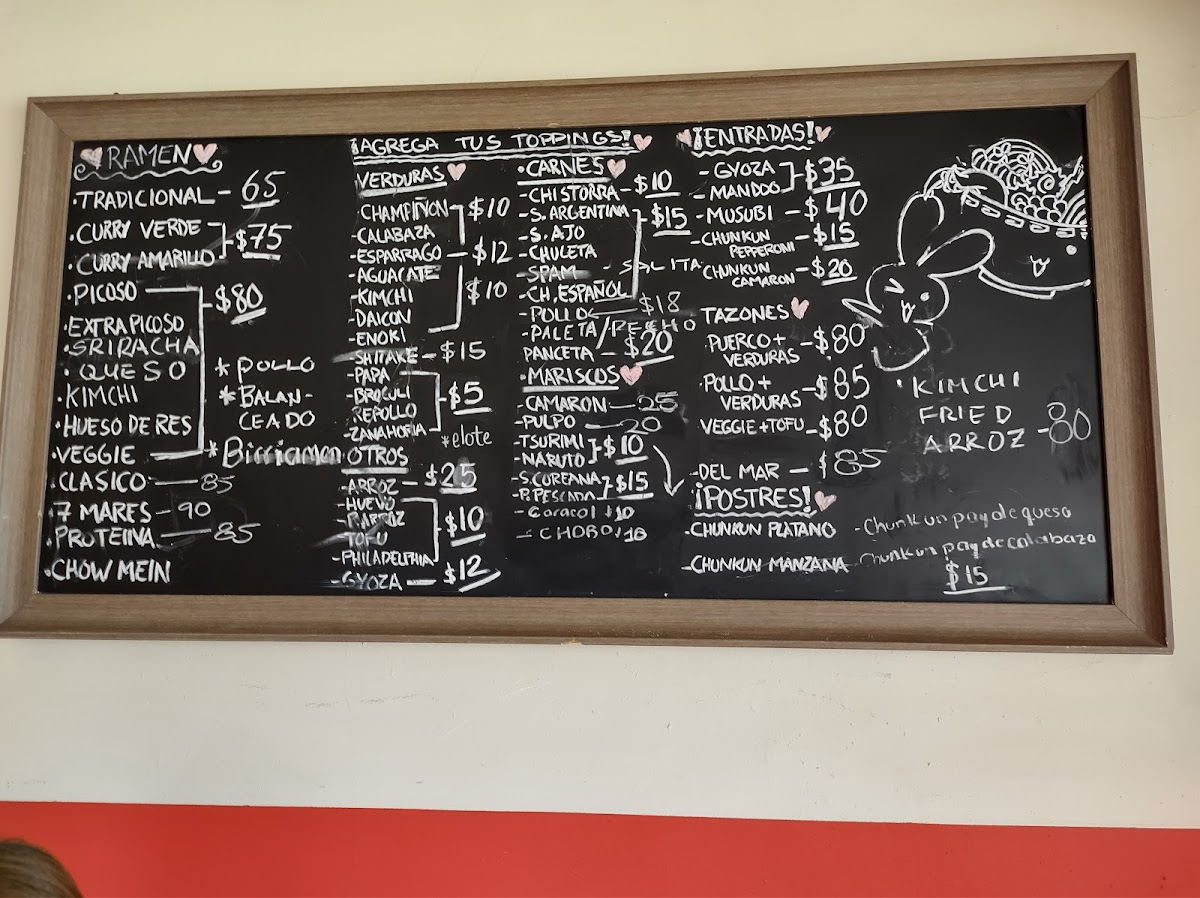 RAMEN
·TRADICIONAL - 65
·CURRY VERDE
·CURRY AMARILLO
$75
·PICOSO
$80
·EXTRA PICOSO
·SRIRACHA
·QUESO
·KIMCHI
·HUESO DE RES
·VEGGIE
*POLLO
*BALAN-
CEADO
*Birriamen
·CLASICO - 85
·7 MARES - 90
·PROTEINA - 85
·CHOW MEIN
¡AGREGA TUS TOPPINGS!
VERDURAS
CHAMPIÑON
$10
-CALABAZA
-ESPARRAGO - $12
-AGUACATE
-KIMCHI
$10
-DAICON
-ENOKI
-SHITAKE - $15
-PAPA
-BROCULI
$5
-REPOLLO
-ZANAHORIA
*elote
OTROS
-ARROZ - $25
-HUEVO
-P. ARROZ
$10
-TOFU
-PHILADELPHIA
-GYOZA - $12
·CARNES
-CHISTORRA - $10
-S. ARGENTINA
$15
-S. AJO
-CHULETA
-SPAM
-CH. ESPAÑOL
-POLLO $18
-PALETA/PECHO
PANCETA - $20
·MARISCOS
-CAMARON - 25
-PULPO - 20
-TSURIMI
-NARUTO
$10
-S. COREANA
-P. PESCADO
$15
-Caracol $10
-CHORO $18
¡ENTRADAS!
-GYOZA
-MANDOO
$35
-MUSUBI - $40
-CHUNKUN
PEPPERONI
$15
-CHUNKUN
CAMARON
$20
TAZONES
·PUERCO +
VERDURAS
-$80
·POLLO +
VERDURAS
-$85
VEGGIE + TOFU - $80
-DEL MAR - $85
¡POSTRES!
-CHUNKUN PLATANO
-CHUNKUN MANZANA
-Chunkun pay de queso
-Chunkun pay de calabaza
$15
·KIMCHI
FRIED
ARROZ - 80